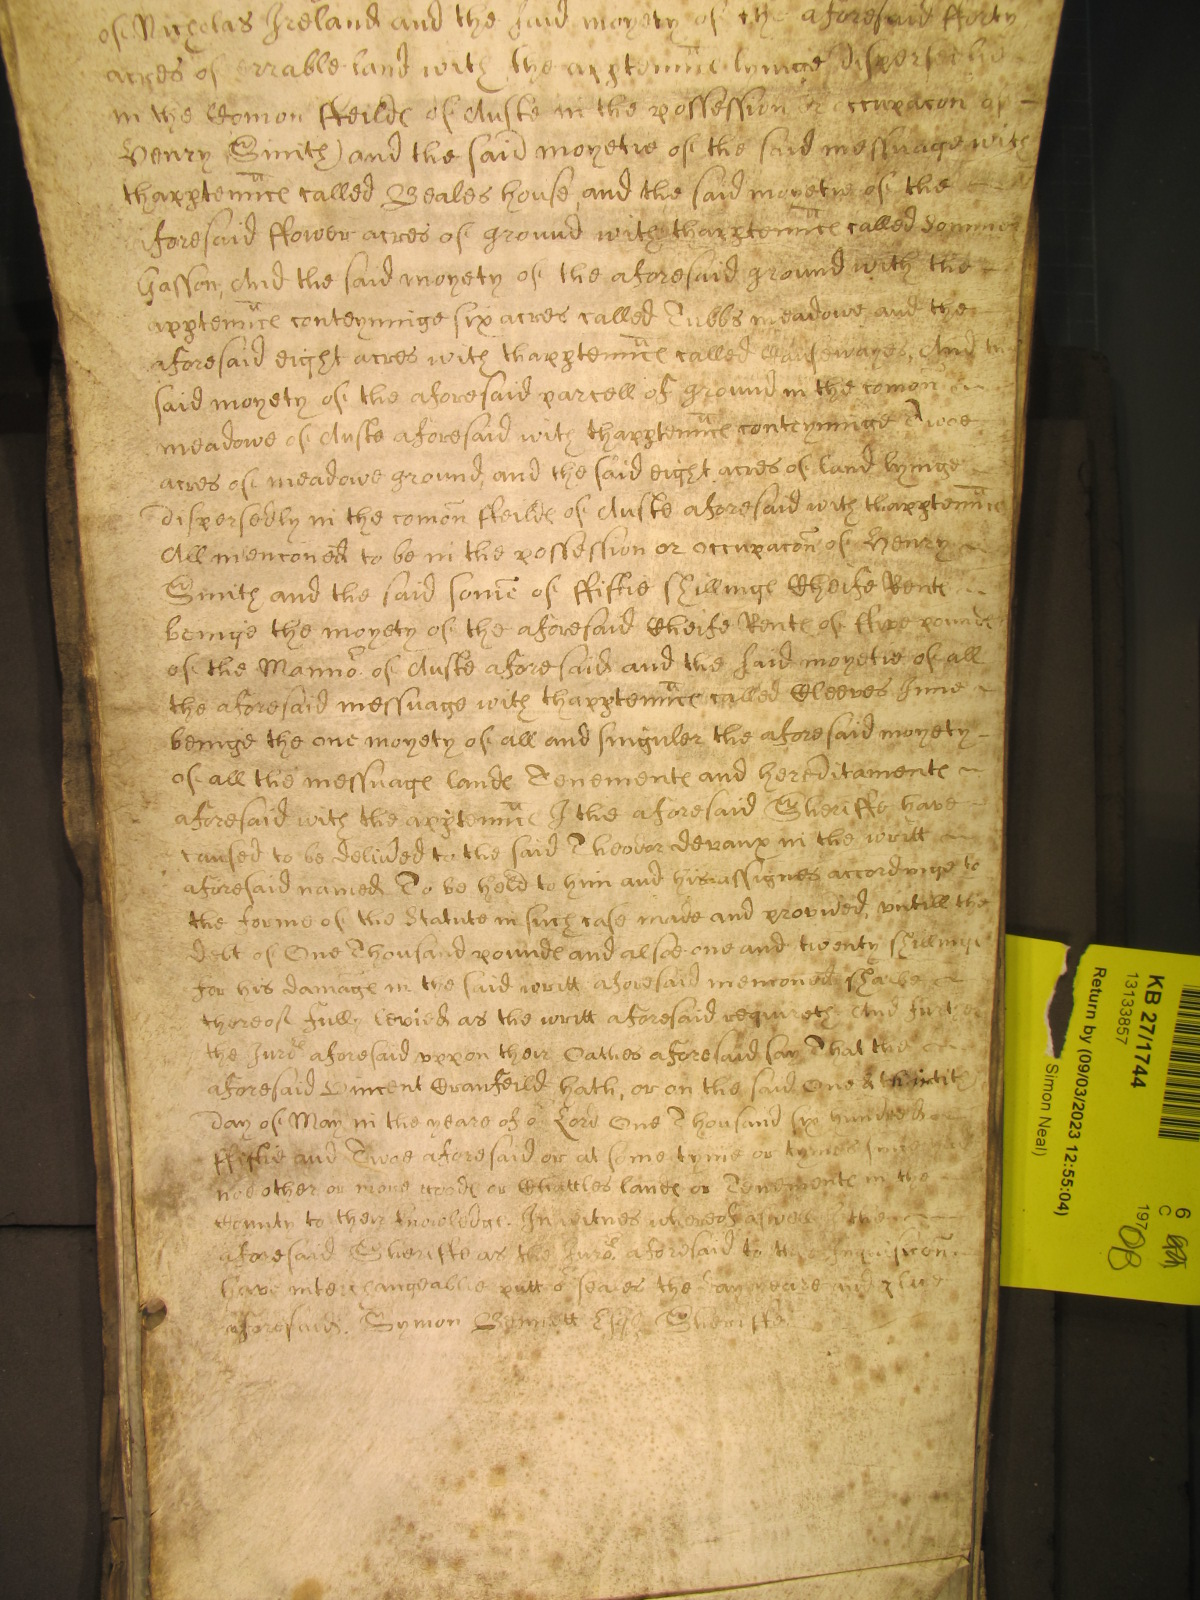 of Nicholas Ireland and the said moyety of the aforesaid fforty
acres of errable land with the apptenncℓ lyinge dispersedly
in the Comon ffeildℓ of Auste in the possession or occupacon of
Henry Smith) and the said moyetie of the said messuage with
thapptenncℓ called Beales house and the said moyetie of the
aforesaid ffower acres of ground with thapptenncℓ called Sommer
Gasson, And the said moyety of the aforesaid ground with the
apptenncℓ conteyninge six acres called Tubbs meadowe and the
aforesaid eight acres with thapptenncℓ called Causewayes, And the
said moyety of the aforesaid parcell of ground in the comon
meadowe of Auste aforesaid with thapptenncℓ conteyninge Twoe
acres of meadowe ground, and the said eight acres of land lyinge
dispersedly in the comon ffeildℓ of Auste aforesaid with thapptenncℓ
All menconed to be in the possession or occupacon of Henry
Smith and the said some of ffiftie shillingℓ Cheife Rentℓ
beinge the moyety of the aforesaid Cheife Rentℓ of ffive poundℓ
of the Mannor of Auste aforesaid and the said moyetie of all
the aforesaid messuage with thapptenncℓ called Cleeves Inne
beinge the one moyety of all and singuler the aforesaid moyety
of all the messuageℓ landℓ Tenementℓ and hereditamentℓ
aforesaid with the apptenncℓ I the aforesaid Sheriffe have
caused to be delived to the said Theodor devaux in the writt
aforesaid named To be held to him and his assignes accordinge to
the forme of the Statute in such case made and provided, untill the
debt of One Thousand poundℓ and alsoe one and twenty shillingℓ
for his damageℓ in the said writt aforesaid menconed shalbe
thereof fully levied as the writt aforesaid requireth And further
the Juror aforesaid uppon their Oathes aforesaid say That the
aforesaid Vincent Cranfeild hath, or on the said One & thirtith
day of May in the yeare of or Lord One Thousand six hundred
ffiftie and Twoe aforesaid or at some tyme or tymes since
noe other or more goodℓ or Chattles landℓ or Tenementℓ in the
County to their knowledge. In witnes whereof aswell I the
aforesaid Sheriffe as the Juror aforesaid to this Inquisicon
have interchangeablie putt or seales the day yeare and place
aforesaid. Symon Bennett Esqr Sheriffe
KB 27/1744
13133857
Return by (09/03/2023 12:55:04)
Simon Neal)
6
C
197
08